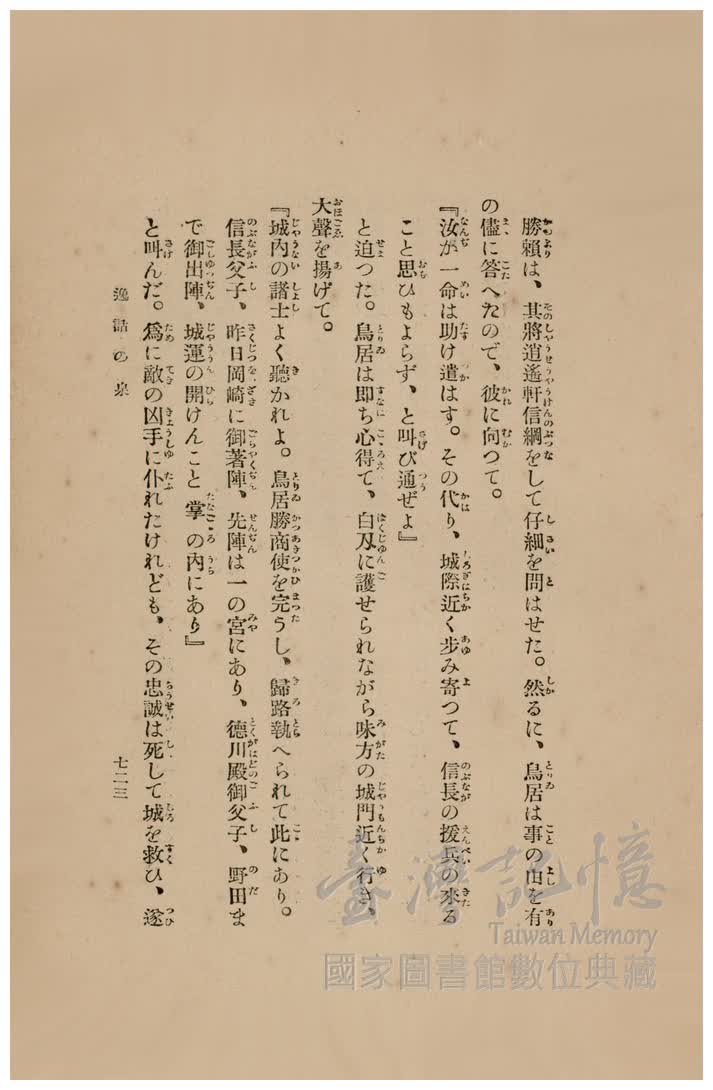 勝賴は、其將逍遙軒信綱をして仔細を問はせた。然るに、鳥居は事の由を有
の儘に答へたので、彼に向つて。
『汝が一命は助け遣はす。その代り、城際近く步み寄つて、信長の援兵の來る
こと思ひもよらず、と叫び通ぜよ』
と迫つた。鳥居は卽ち心得て、白刄に護せられながら味方の城門近く行き、
大聲を揚げて。
『城內の諸士よく聽かれよ。鳥居勝商使を完うし、歸路執へられて此にあり。
信長父子、昨日岡崎に御著陣、先陣は一の宮にあり、德川殿御父子、野田ま
で御出陣、城運の開けんこと掌の內にあり』
と叫んだ。爲に敵の凶手に仆れたけれども、その忠誠は死して城を救ひ、遂
逸話の泉
七二三
臺灣記憶
Taiwan Memory
國家圖書館數位典藏